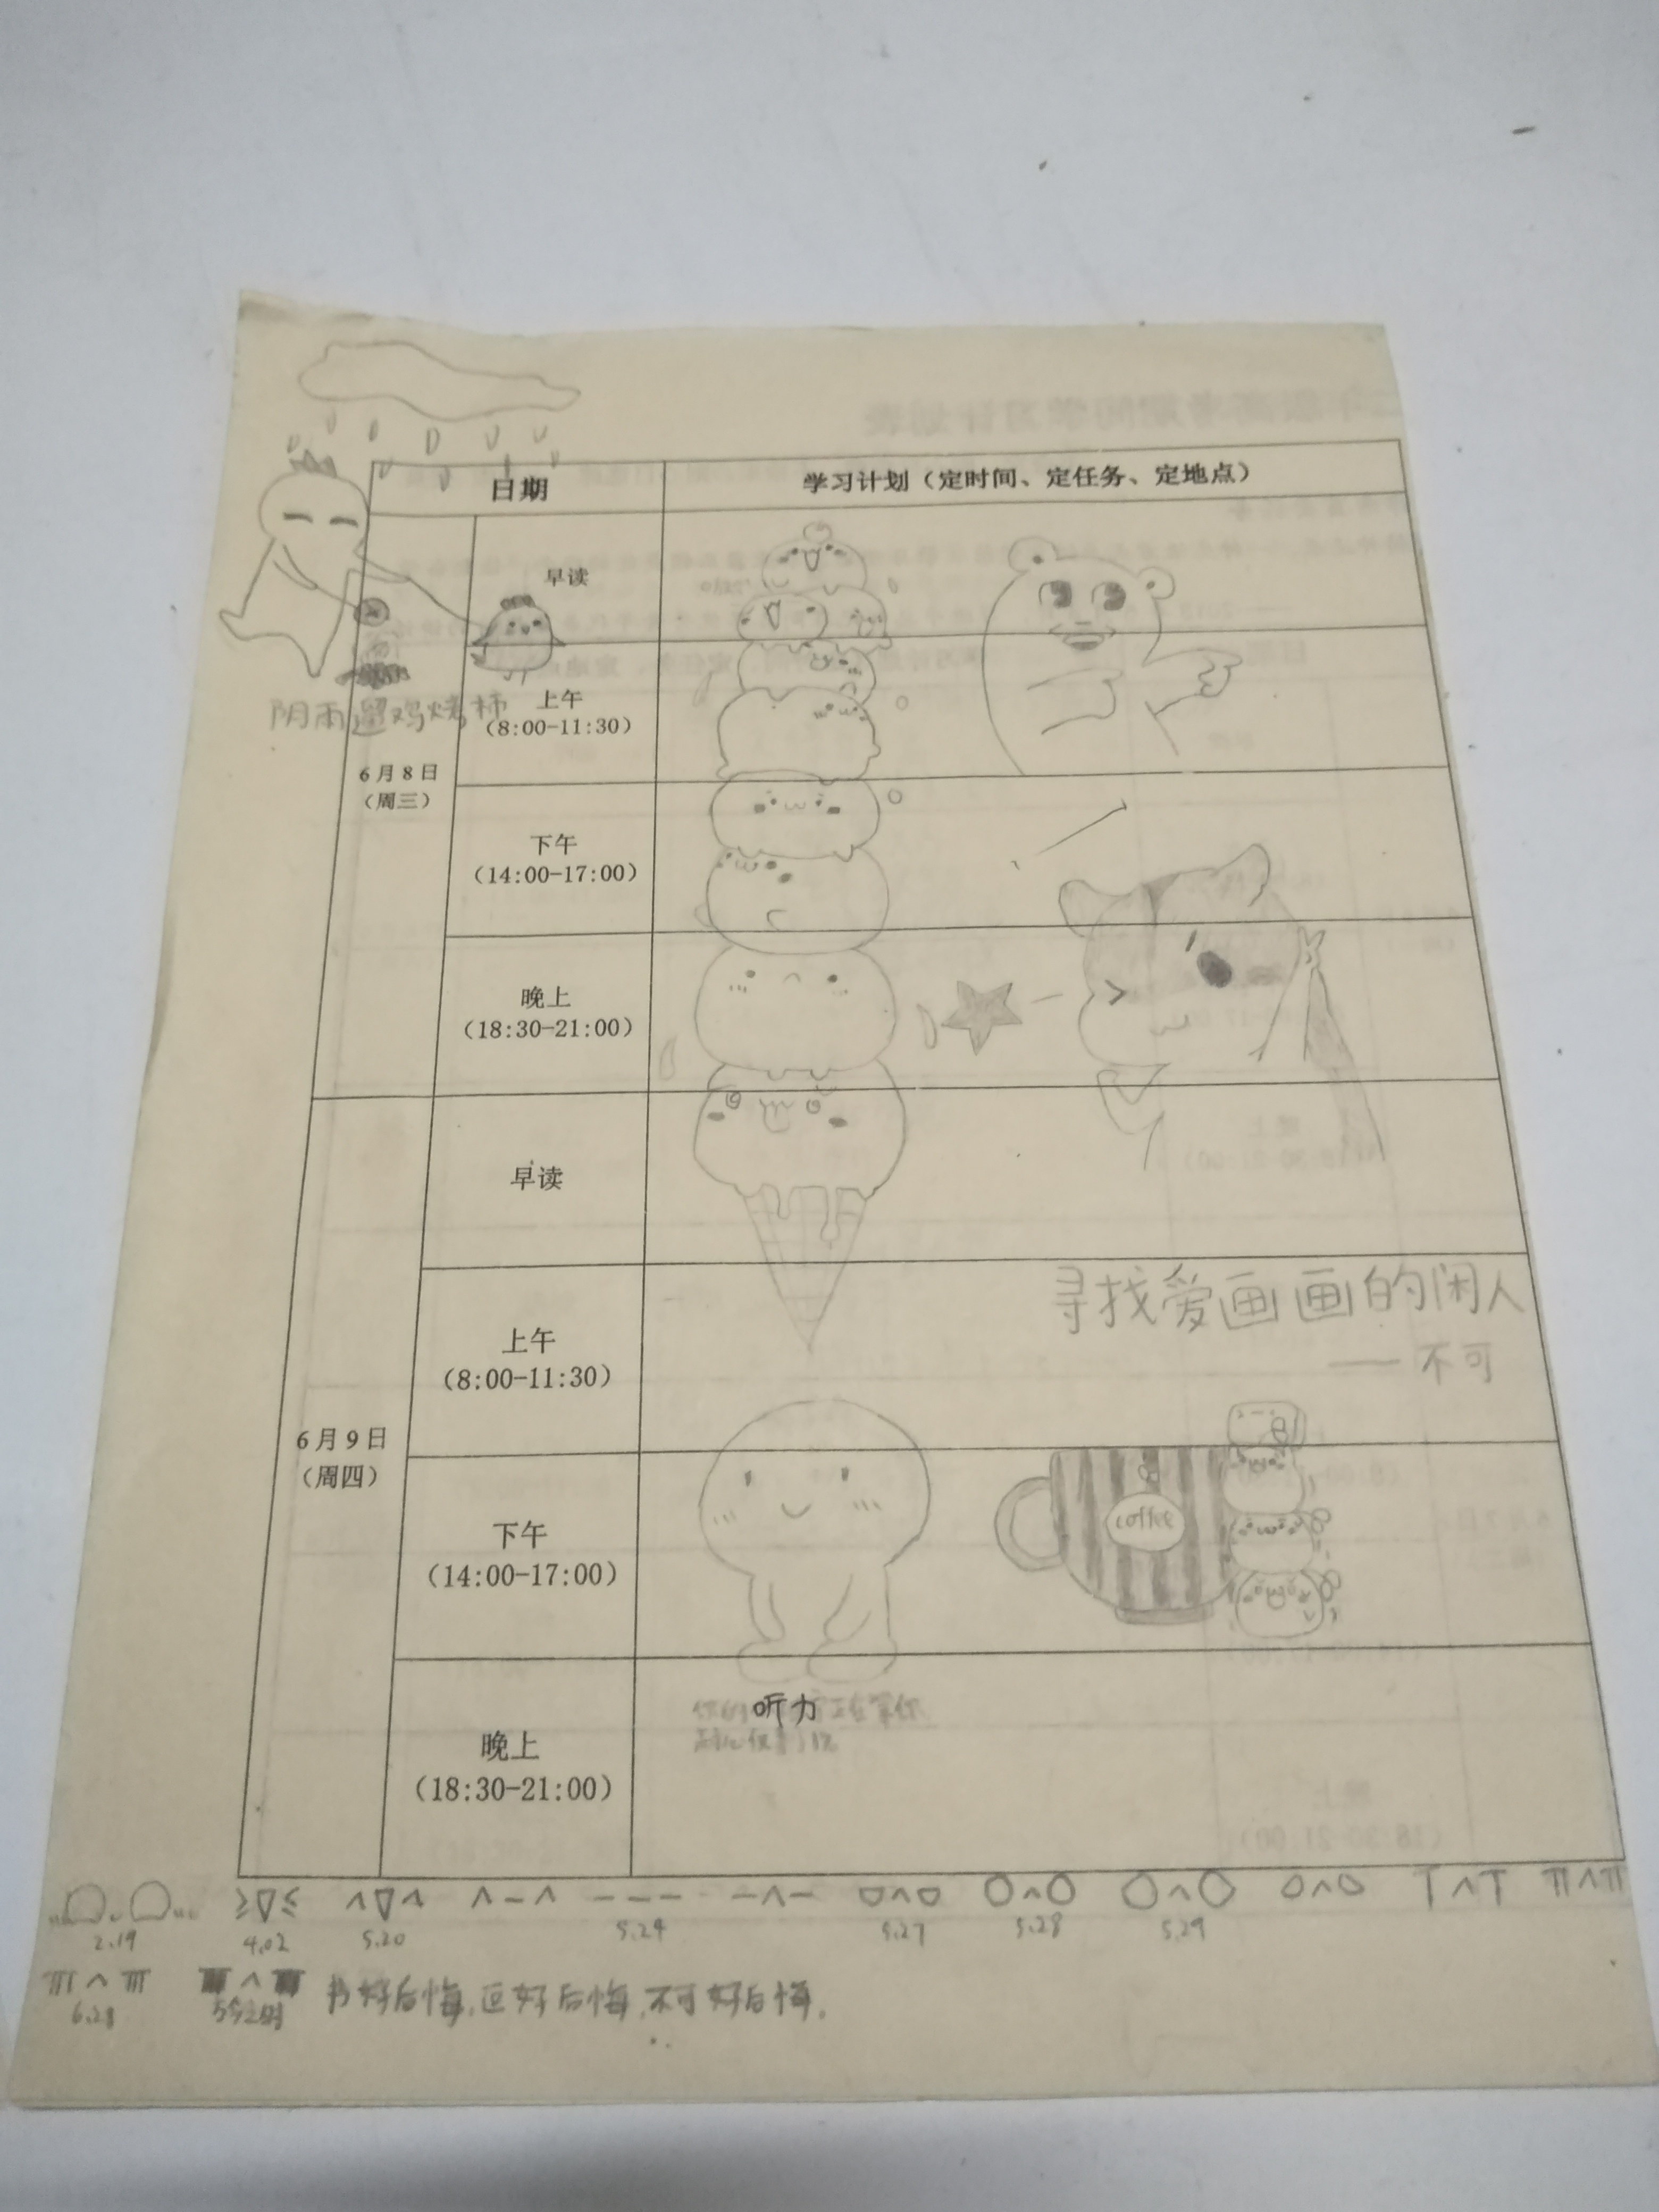 日期
学习计划（定时间、定任务、定地点）
阴雨遛鸡烤柿
6月8日
（周三）
早读
上午
（8:00-11:30）
下午
（14:00-17:00）
晚上
（18:30-21:00）
6月9日
（周四）
早读
上午
（8:00-11:30）
寻找爱画画的闲人
——不可
下午
（14:00-17:00）
coffee
晚上
（18:30-21:00）
听力
2.19
4.02
5.20
5.24
5.27
5.28
5.29
6.28
好后悔，逗好后悔，不可好后悔。